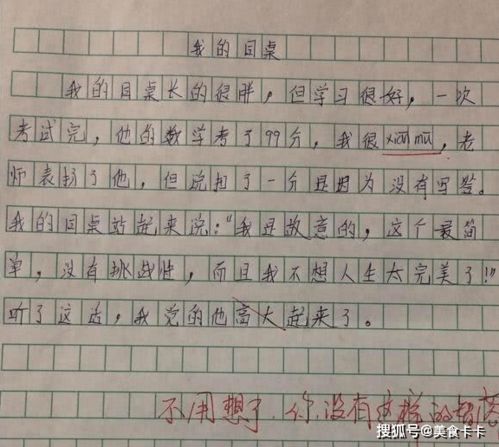 我的同桌
我的同桌长的很胖，但学习很好，一次
考试完，他的数学考了99分，我很xiàn mù，老
师表扬了他，但说扣了一分是因为没有写答。
我的同桌站起来说："我是故意的，这个最简
单，没有挑战性，而且我不想人生太完美了!"
听了这话，我觉的他高大起来了。
不用想了，你没有这样的智慧
搜狐号@美食卡卡